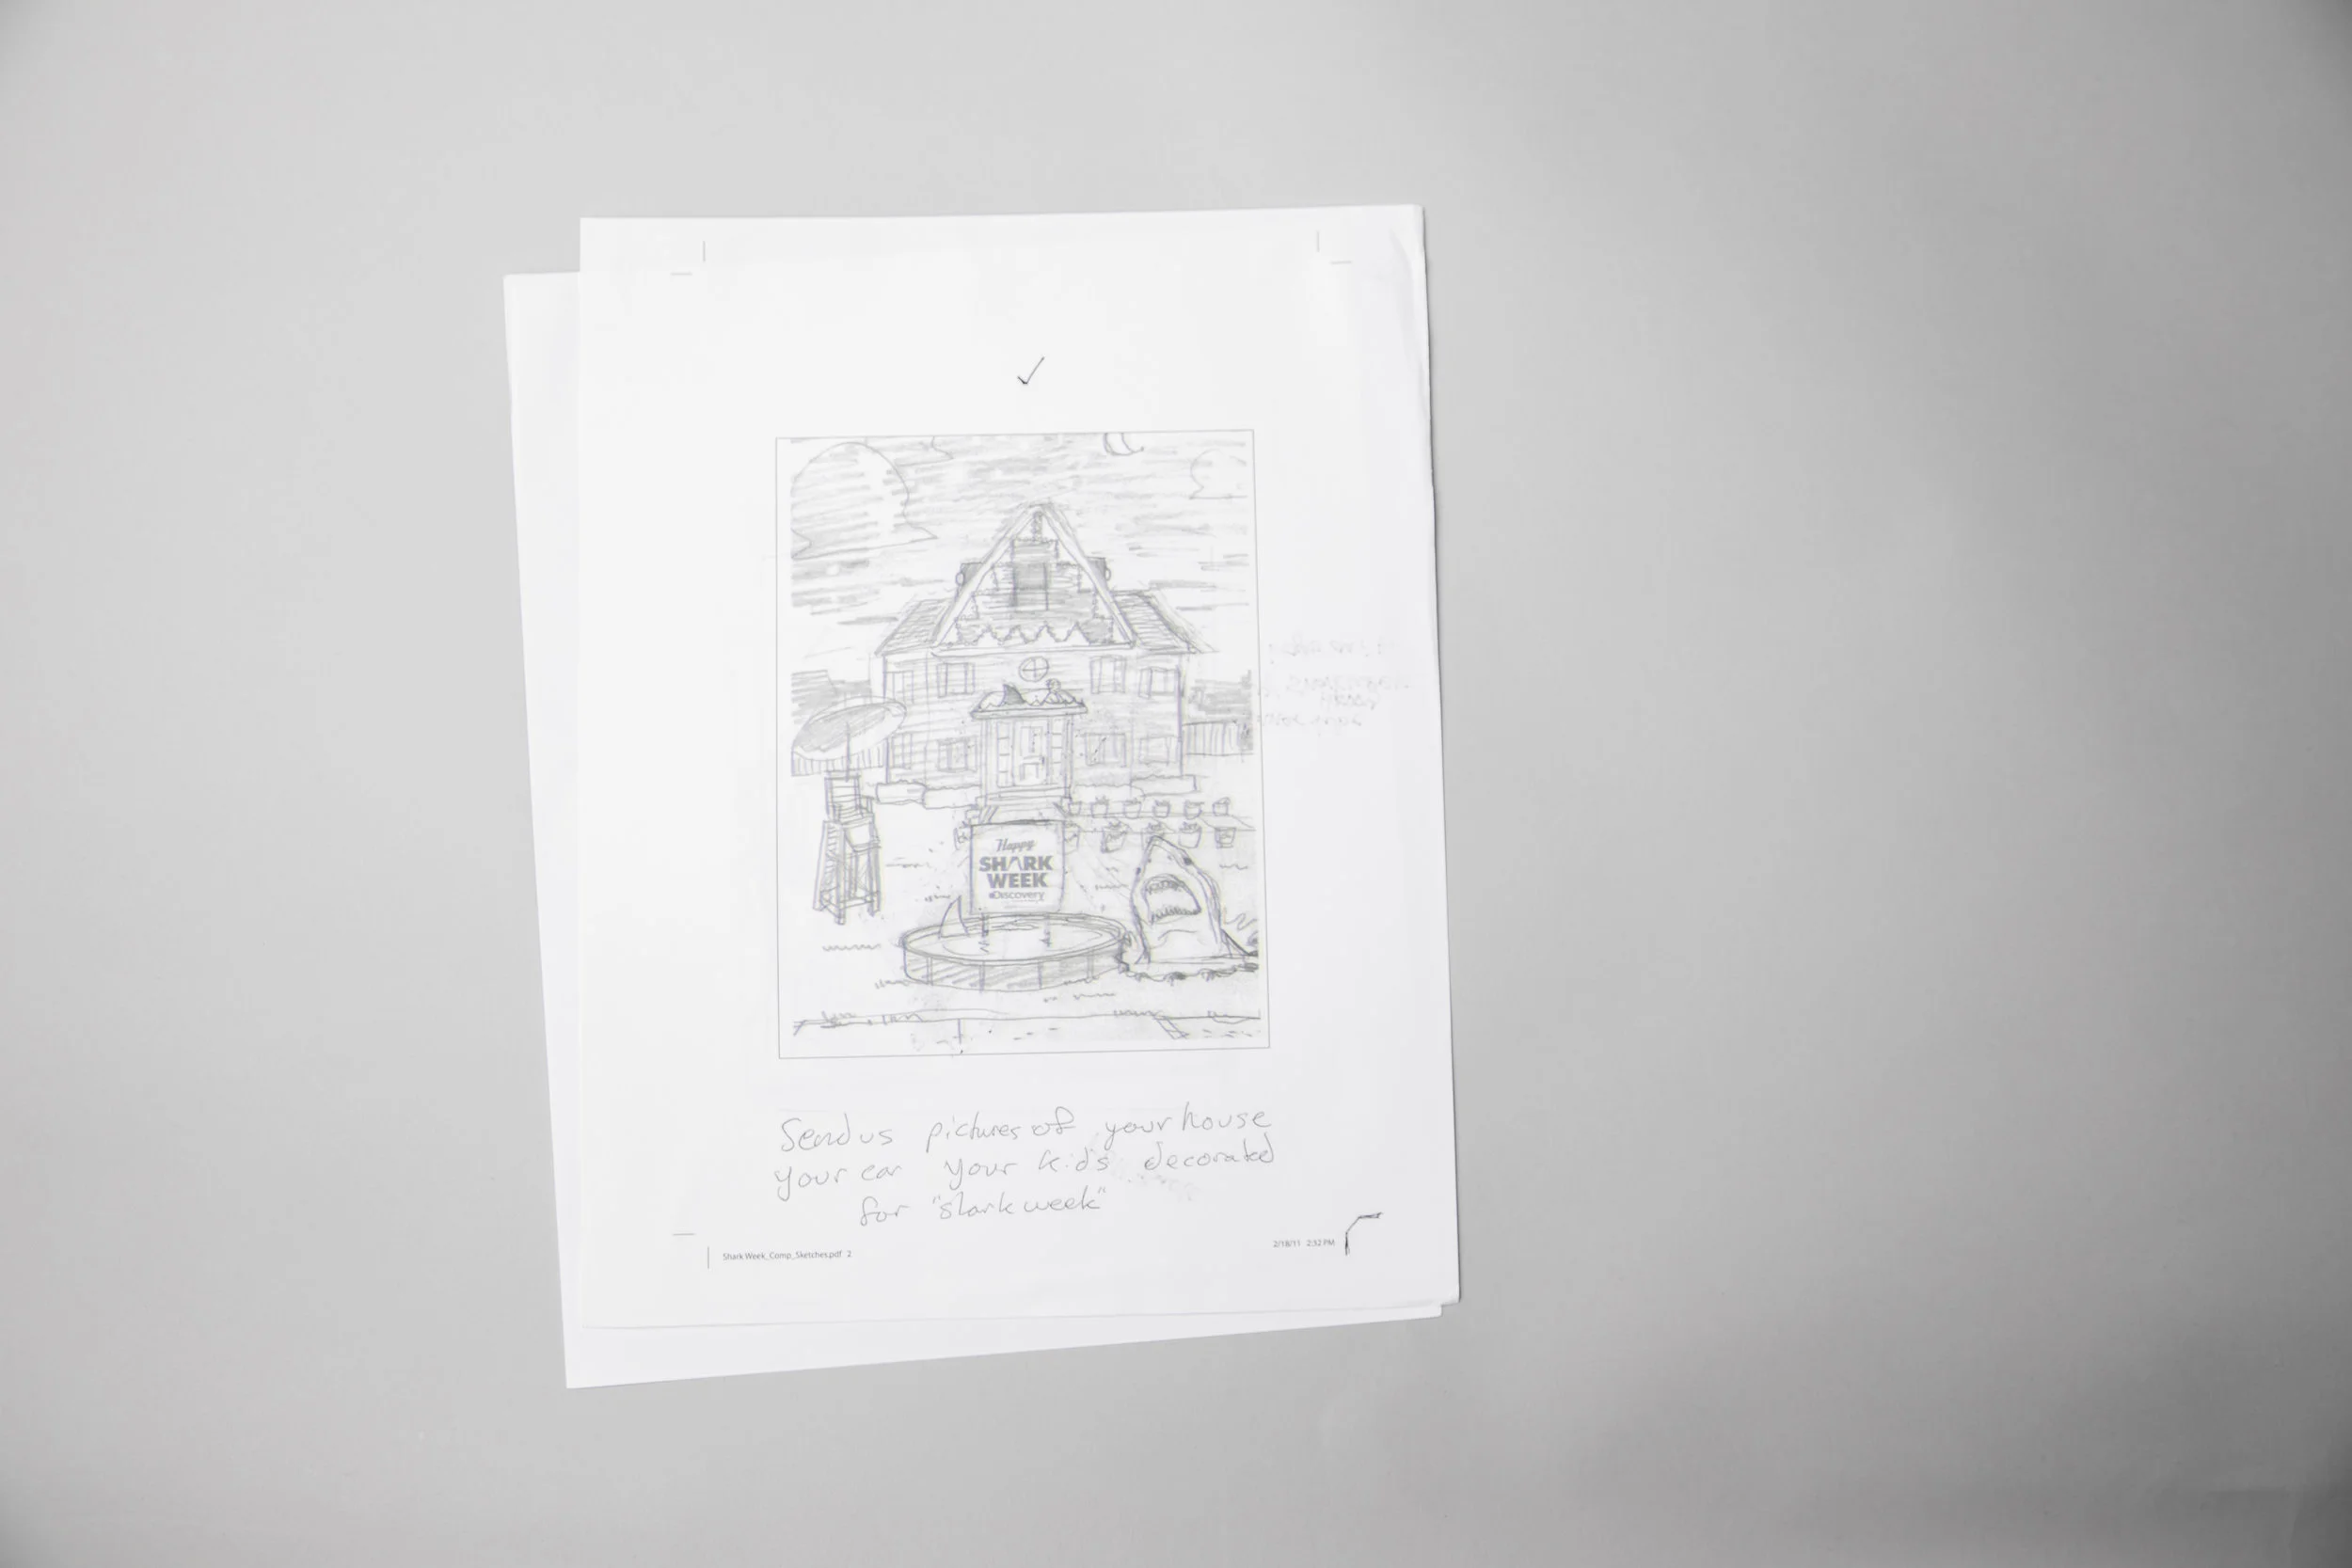 Happy
SHARK
WEEK
Discovery
Send us pictures of your house
your car your kids decorated
for "shark week"
Shark Week_Comp_Sketches.pdf 2
2/18/11 2:32 PM